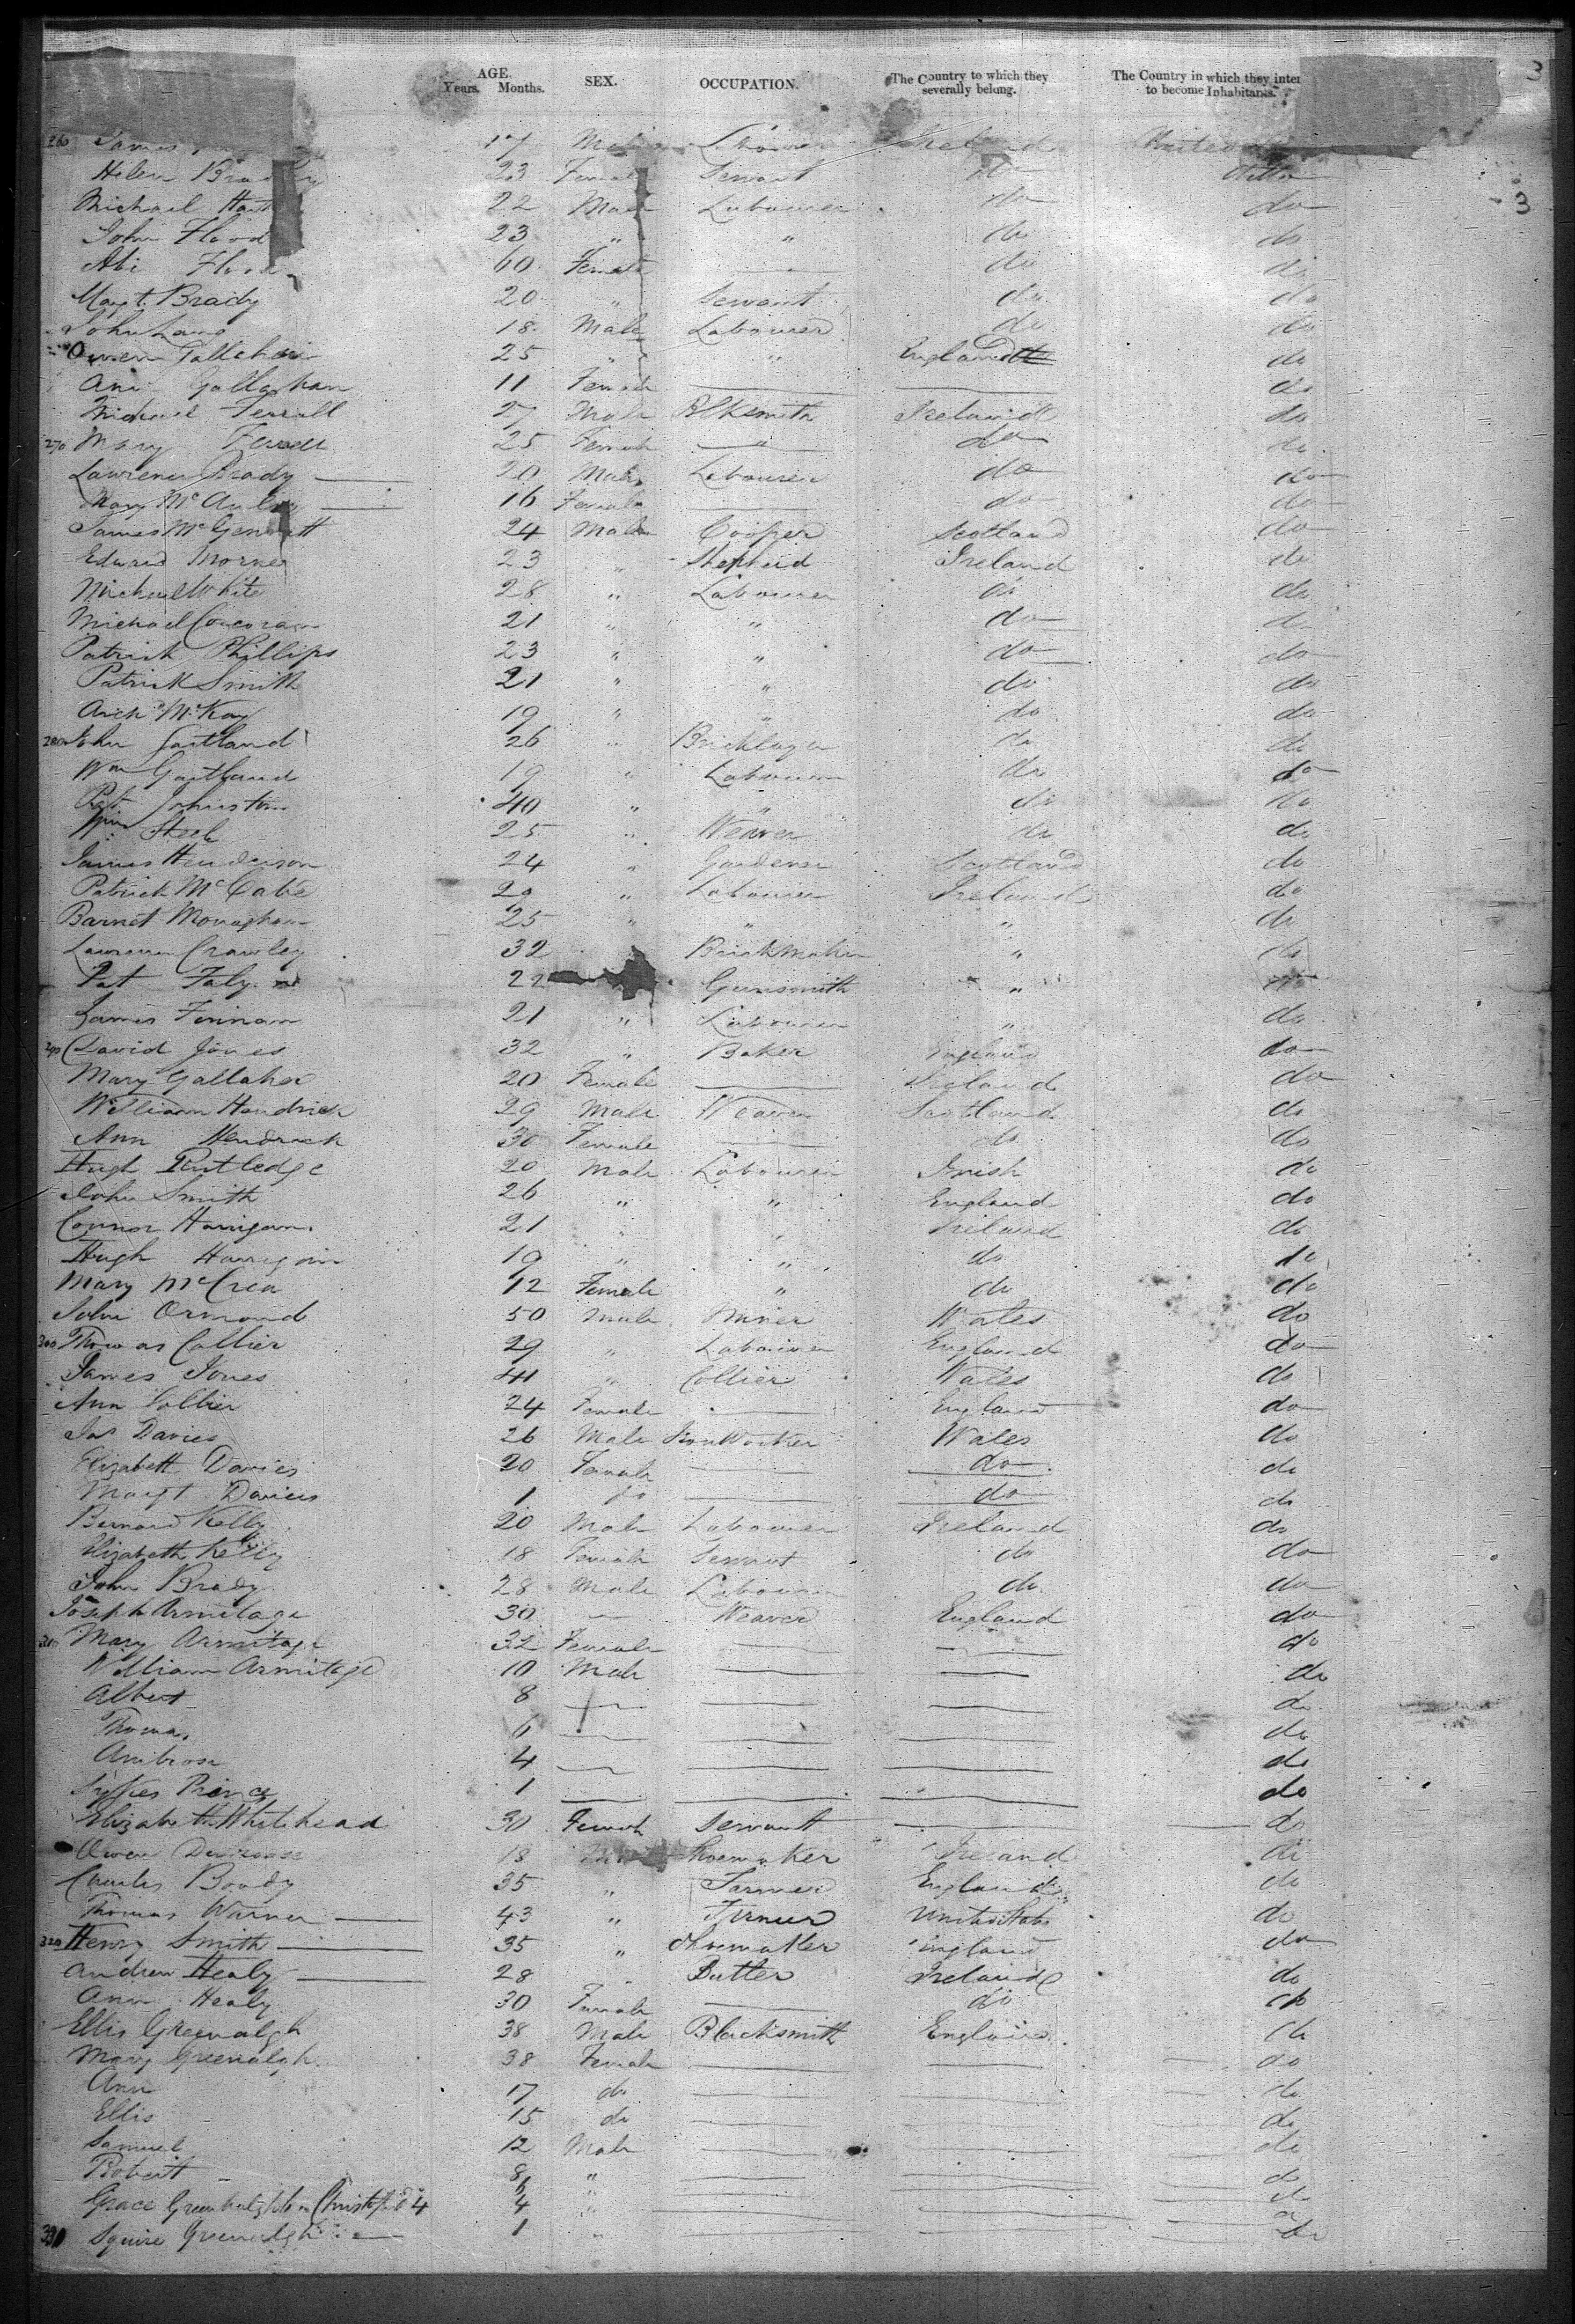 AGE. SEX. OCCUPATION. The Country to which they severally belong. The Country in which they inten to become Inhabitants. 3
Years. Months.
260 James 17 Male Labourer Ireland United
Helen Brady 23 Female Servant do Ditto
Michael 22 Male Labourer do do 3
John Flood 23 " " do do
Abi Flood 60 Female do do
Margt. Brady 20 " Servant do do
John Lang 18 Male Labourer do do
Owen Gallehan 25 " " England do
Ann Gallaghan 11 Female do
Michael Ferrall 27 Male Blksmith Ireland do
270 Mary Ferrall 25 Female " do do
Lawrence Brady 20 Male Labourer do do
Mary 16 Female do do
James 24 Male Cooper Scotland do
Edward 23 " Shepherd Ireland do
Michael White 28 " Labourer do do
Michael Corcoran 21 " " do do
Patrick Phillips 23 " " do do
Patrick Smith 21 " " do do
Arch McKay 19 " " do do
280 John Gartland 26 " Bricklayer do do
Wm Gartland 19 " Labourer do do
Pat Johnston 40 " " do do
Wm Steele 25 " Weaver do do
James Henderson 24 " Gardener Scotland do
Patrick McCabe 29 " Labourer Ireland do
Barnet Monaghan 25 " " " do
Lawrence Crawley 32 Brickmaker " do
Pat 22 Gunsmith " do
James Finnan 21 " Labourer " do
290 David Jones 32 " Baker England do
Mary Gallaher 20 Female Ireland do
William Hendrick 29 Male Weaver Scotland do
Ann Hendrick 30 Female do do
Hugh Rutledge 20 Male Labourer Irish do
John Smith 26 " " England do
Connor Harrigan 21 " " Ireland do
Hugh Harrigan 19 " " do do
Mary McCrea 12 Female " do do
John Ormond 50 Male Miner Wales do
300 Thomas Collier 29 " Labourer England do
James Jones 41 " Collier Wales do
Ann Collier 24 Female England do
Jas Davies 26 Male Iron Worker Wales do
Elizabeth Davies 20 Female do do
Margt Davies 1 do do do
Bernard Kelly 20 Male Labourer Ireland do
Elizabeth Kelly 18 Female Servant do do
John Brady 28 Male Labourer do do
Joseph Armitage 30 Weaver England do
310 Mary Armitage 32 Female do
William Armitage 10 Male do
Albert 8 do
Thomas 6 do
Ambrose 4 do
Sykes Prince 1 do
Elizabeth Whitehead 30 Female Servant do
Owen 18 Shoemaker Ireland do
Charles 35 " Farmer England do
Thomas Warner 43 " Turner United States do
320 Henry Smith 35 " Shoemaker England do
Andrew Healy 28 Butler Ireland do
Ann Healy 30 Female do do
Ellis Greenalgh 38 Male Blacksmith England do
Mary Greenalgh 38 Female do
Ann 17 do do
Ellis 15 do do
Samuel 12 Male do
Robert 8 " do
Grace 4 " do
330 Squire Greenalgh 1 " do